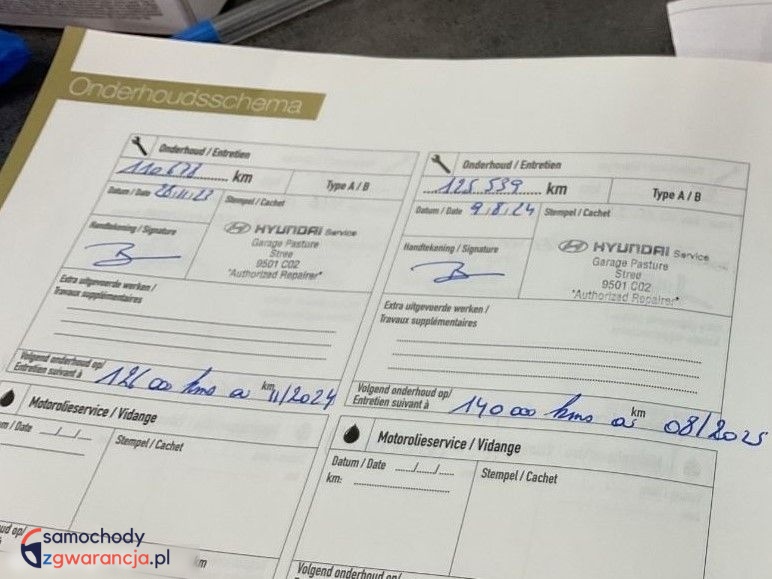 Onderhoudsschema
Onderhoud / Entretien
110 678 km
Type A / B
Datum / Date 28/11/23
Stempel / Cachet
Handtekening / Signature
HYUNDAI Service
Garage Pasture
Stree
9501 C02
"Authorized Repairer"
Extra uitgevoerde werken /
Travaux supplémentaires
Volgend onderhoud op/
Entretien suivant à 126 000 kms km 11/2024
Onderhoud / Entretien
125 539 km
Type A / B
Datum / Date 9/8/24
Stempel / Cachet
Handtekening / Signature
HYUNDAI Service
Garage Pasture
Stree
9501 C02
"Authorized Repairer"
Extra uitgevoerde werken /
Travaux supplémentaires
Volgend onderhoud op/
Entretien suivant à 140 000 kms km 08/2025
Motorolieservice / Vidange
/ Date
Stempel / Cachet
onderhoud op/
km
Motorolieservice / Vidange
Datum / Date
km:
Stempel / Cachet
Volgend onderhoud op/
samochody
zgwarancja.pl